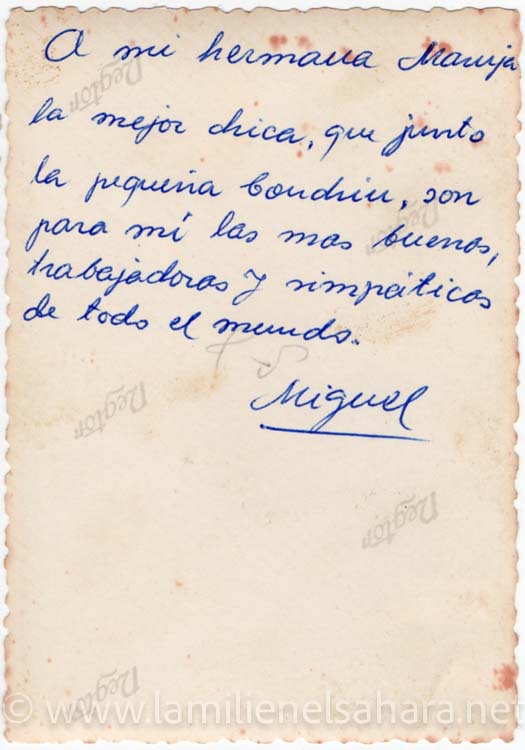 A mi hermana Maruja
la mejor chica, que junto
la pequeña, son
para mí las mas buenas,
trabajadoras y simpáticas
de todo el mundo.
Miguel
Negtor
Negtor
Negtor
Negtor
Negtor
© www.lamilienelsahara.net